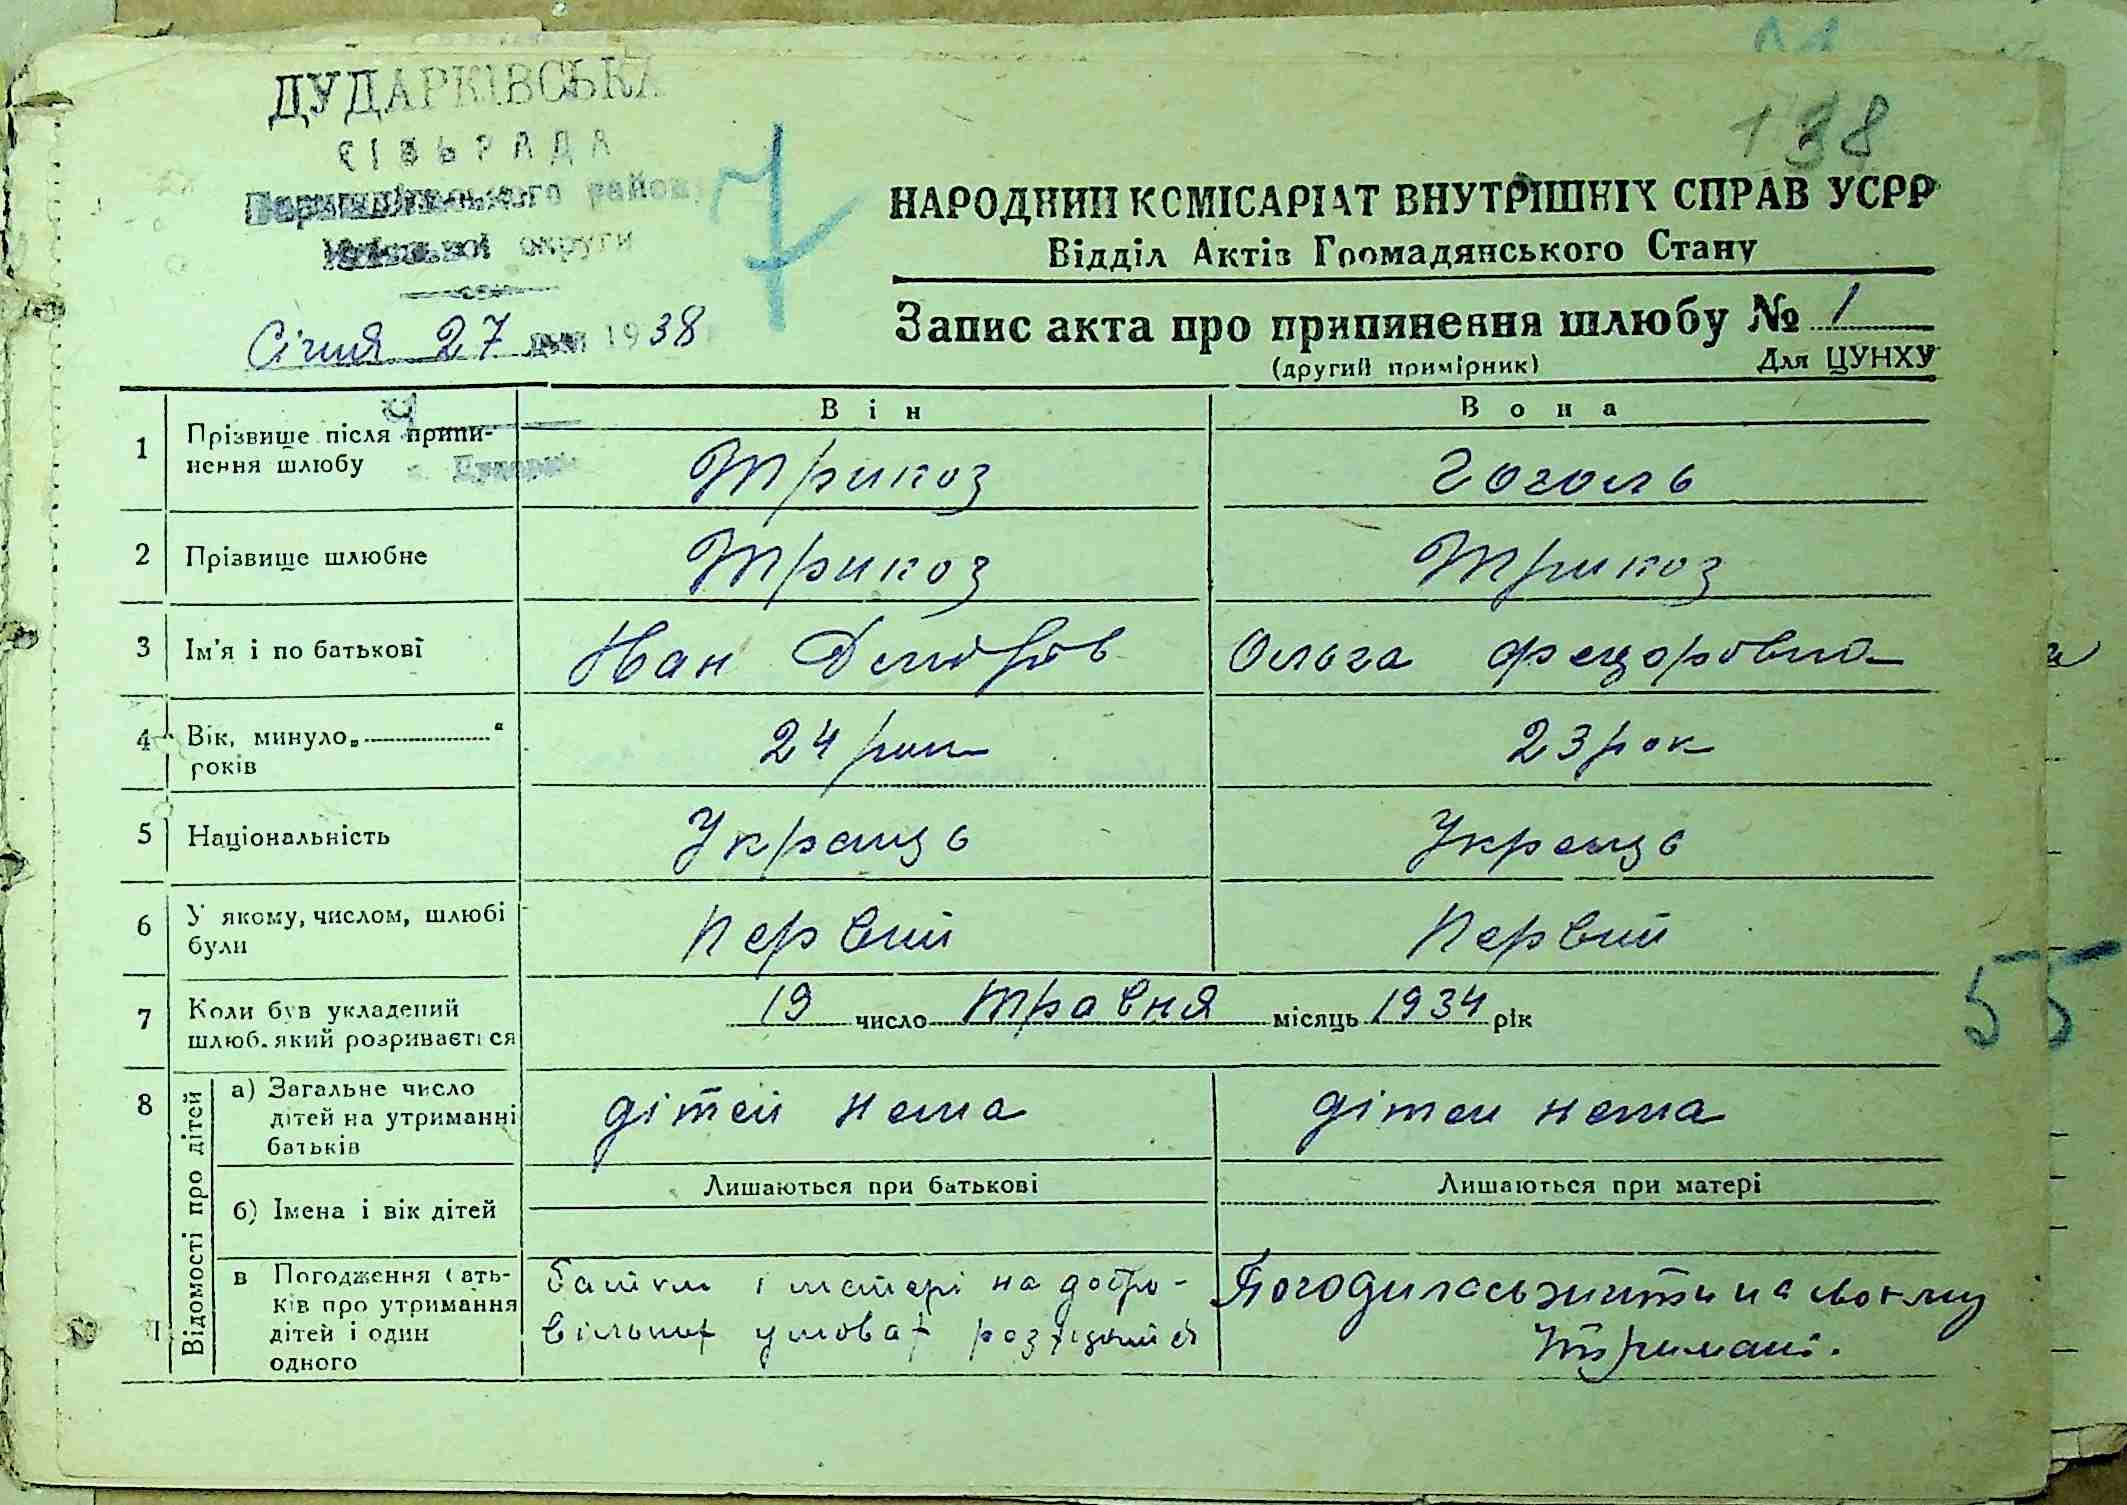 ДУДАРКІВСЬКА
СІЛЬРАДА
району
округи
138
7
НАРОДНИЙ КОМІСАРІАТ ВНУТРІШНІХ СПРАВ УСРР
Відділ Актів Громадянського Стану
Січня 27 дня 1938
Запис акта про припинення шлюбу № 1
(другий примірник) Для ЦУНХУ
Він Вона
1 Прізвище після припи-
нення шлюбу Трикоз Гоголь
2 Прізвище шлюбне Трикоз Трикоз
3 Ім'я і по батькові Иван Ольга Федоровна
4 Вік, минуло „ “
років 24 рок 23 рок
5 Національність Украинць Украинць
6 У якому, числом, шлюбі
були Первий Первий
7 Коли був укладений
шлюб, який розривається 19 число Травня місяць 1934 рік
55
8 Відомості про дітей
а) Загальне число
дітей на утриманні
батьків дітей нема дітей нема
Лишаються при батькові Лишаються при матері
б) Імена і вік дітей
в Погодження бать-
ків про утримання
дітей і один
одного
і матері на добро-
вільних умовах
Погодилась жити на своєму